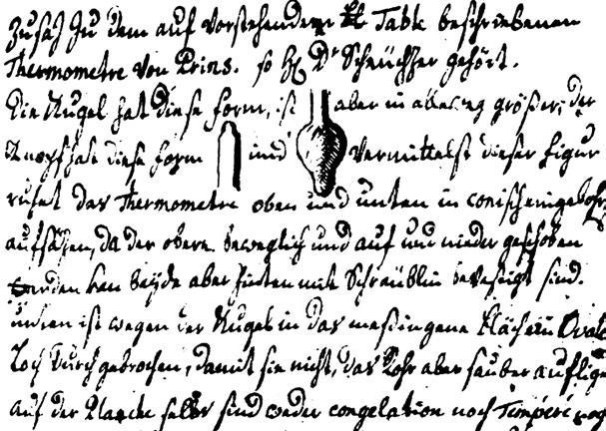 Zusaz zu dem auf vorstehender Table beschriebenen
Thermometre von Prins. so H. Dr Scheüchzer gehört.
Die Kugel hat diese form, ist aber in allweg größer; der
Knopf hat diese form und vermittelst dieser figur
ruhet das Thermometre oben und unten in conisch
aufsäzen, da der obere beweglich und auf und nieder geschoben
werden kan beyde aber hinten mit Schräublin bevestigt sind.
unten ist wegen der Kugel in das meßingene Blächlin Oval
Loch durchgebrochen, damit sie nicht, das Rohr aber sauber auflige
auf der Planche selbs sind weder congelation noch Temperé